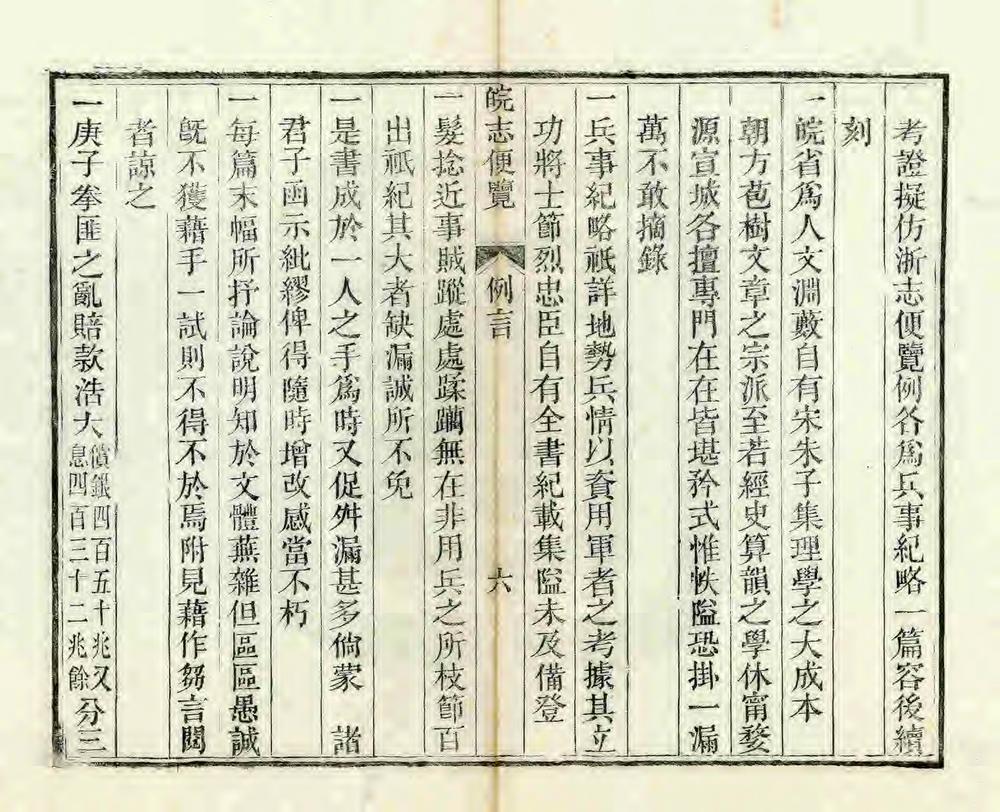 考證擬仿浙志便覽例各爲兵事紀略一篇容後續
刻
一皖省爲人文淵藪自有宋朱子集理學之大成本
朝方苞樹文章之宗派至若經史算韻之學休甯婺
源宣城各擅專門在在皆堪矜式惟帙隘恐掛一漏
萬不敢摘錄
一兵事紀略祇詳地勢兵情以資用軍者之考據其立
功將士節烈忠臣自有全書紀載集隘未及備登
皖志便覽 例言 六
一髮捻近事賊蹤處處蹂躪無在非用兵之所枝節百
出祇紀其大者缺漏誠所不免
一是書成於一人之手爲時又促舛漏甚多倘蒙 諸
君子函示紕繆俾得隨時增改感當不朽
一每篇末幅所抒論說明知於文體蕪雜但區區愚誠
旣不獲藉手一試則不得不於焉附見藉作芻言閱
者諒之
一庚子拳匪之亂賠款浩大償銀四百五十兆又息四百三十二兆餘分三